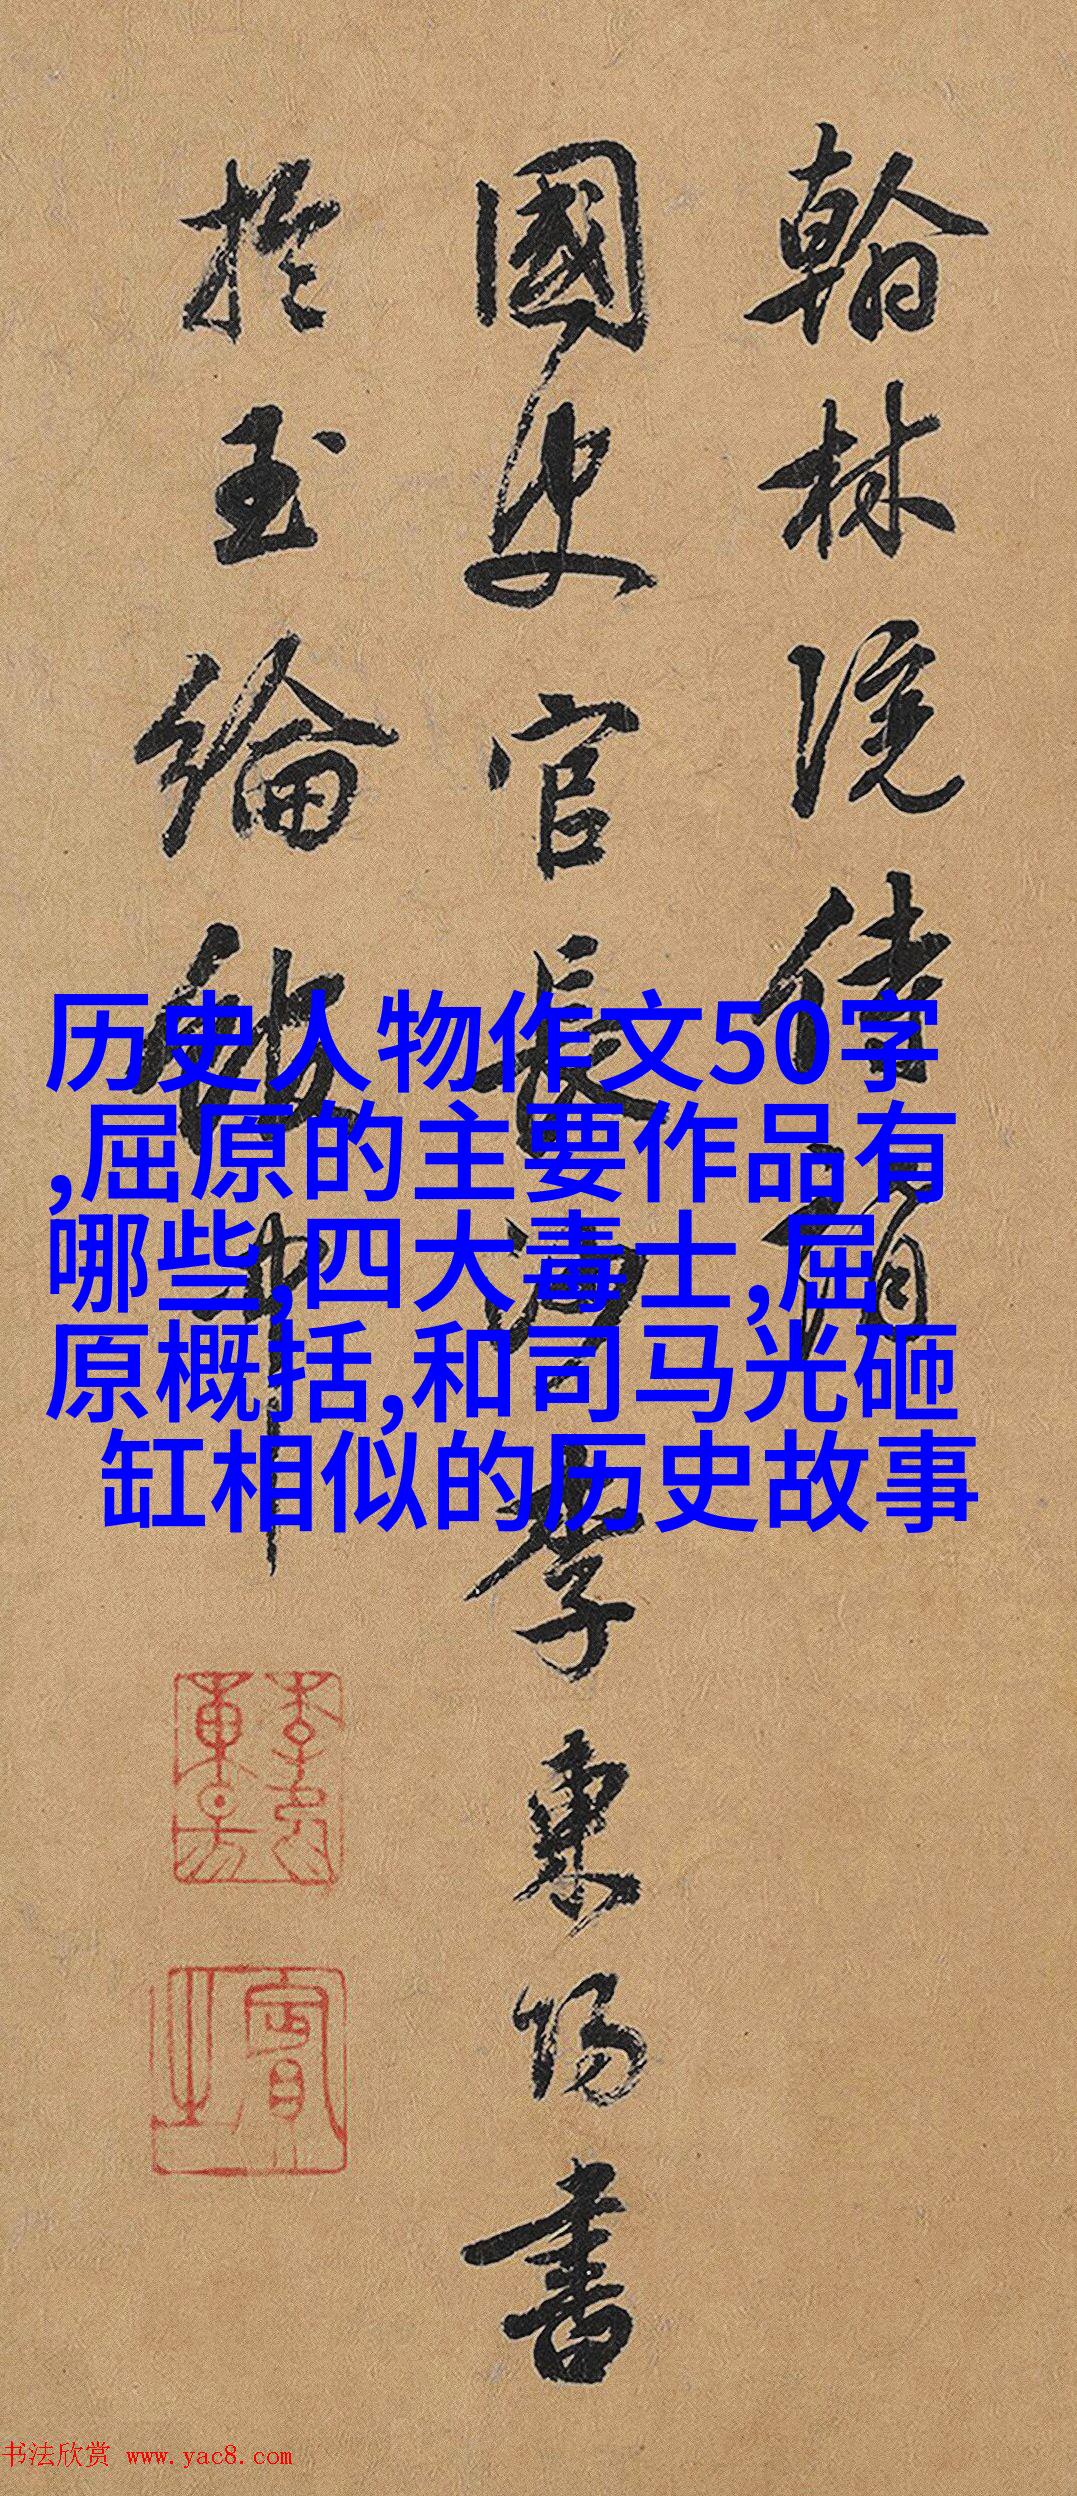 翰林院侍
國史官長沙李東陽書
於玉綸
历史人物作文50字
,屈原的主要作品有
哪些,四大毒士,屈
原概括,和司马光砸
缸相似的历史故事
书法欣赏 www.yac8.com